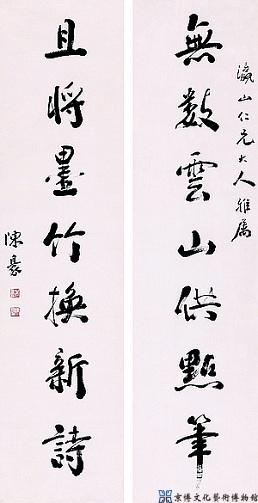 瀛山仁兄大人雅屬
無數雲山供點筆
且將墨竹換新詩
陳豪
京博文化藝術博物館